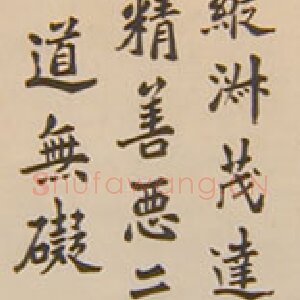 淋茂達
精善惡二
道無礙
Shufawang.CN